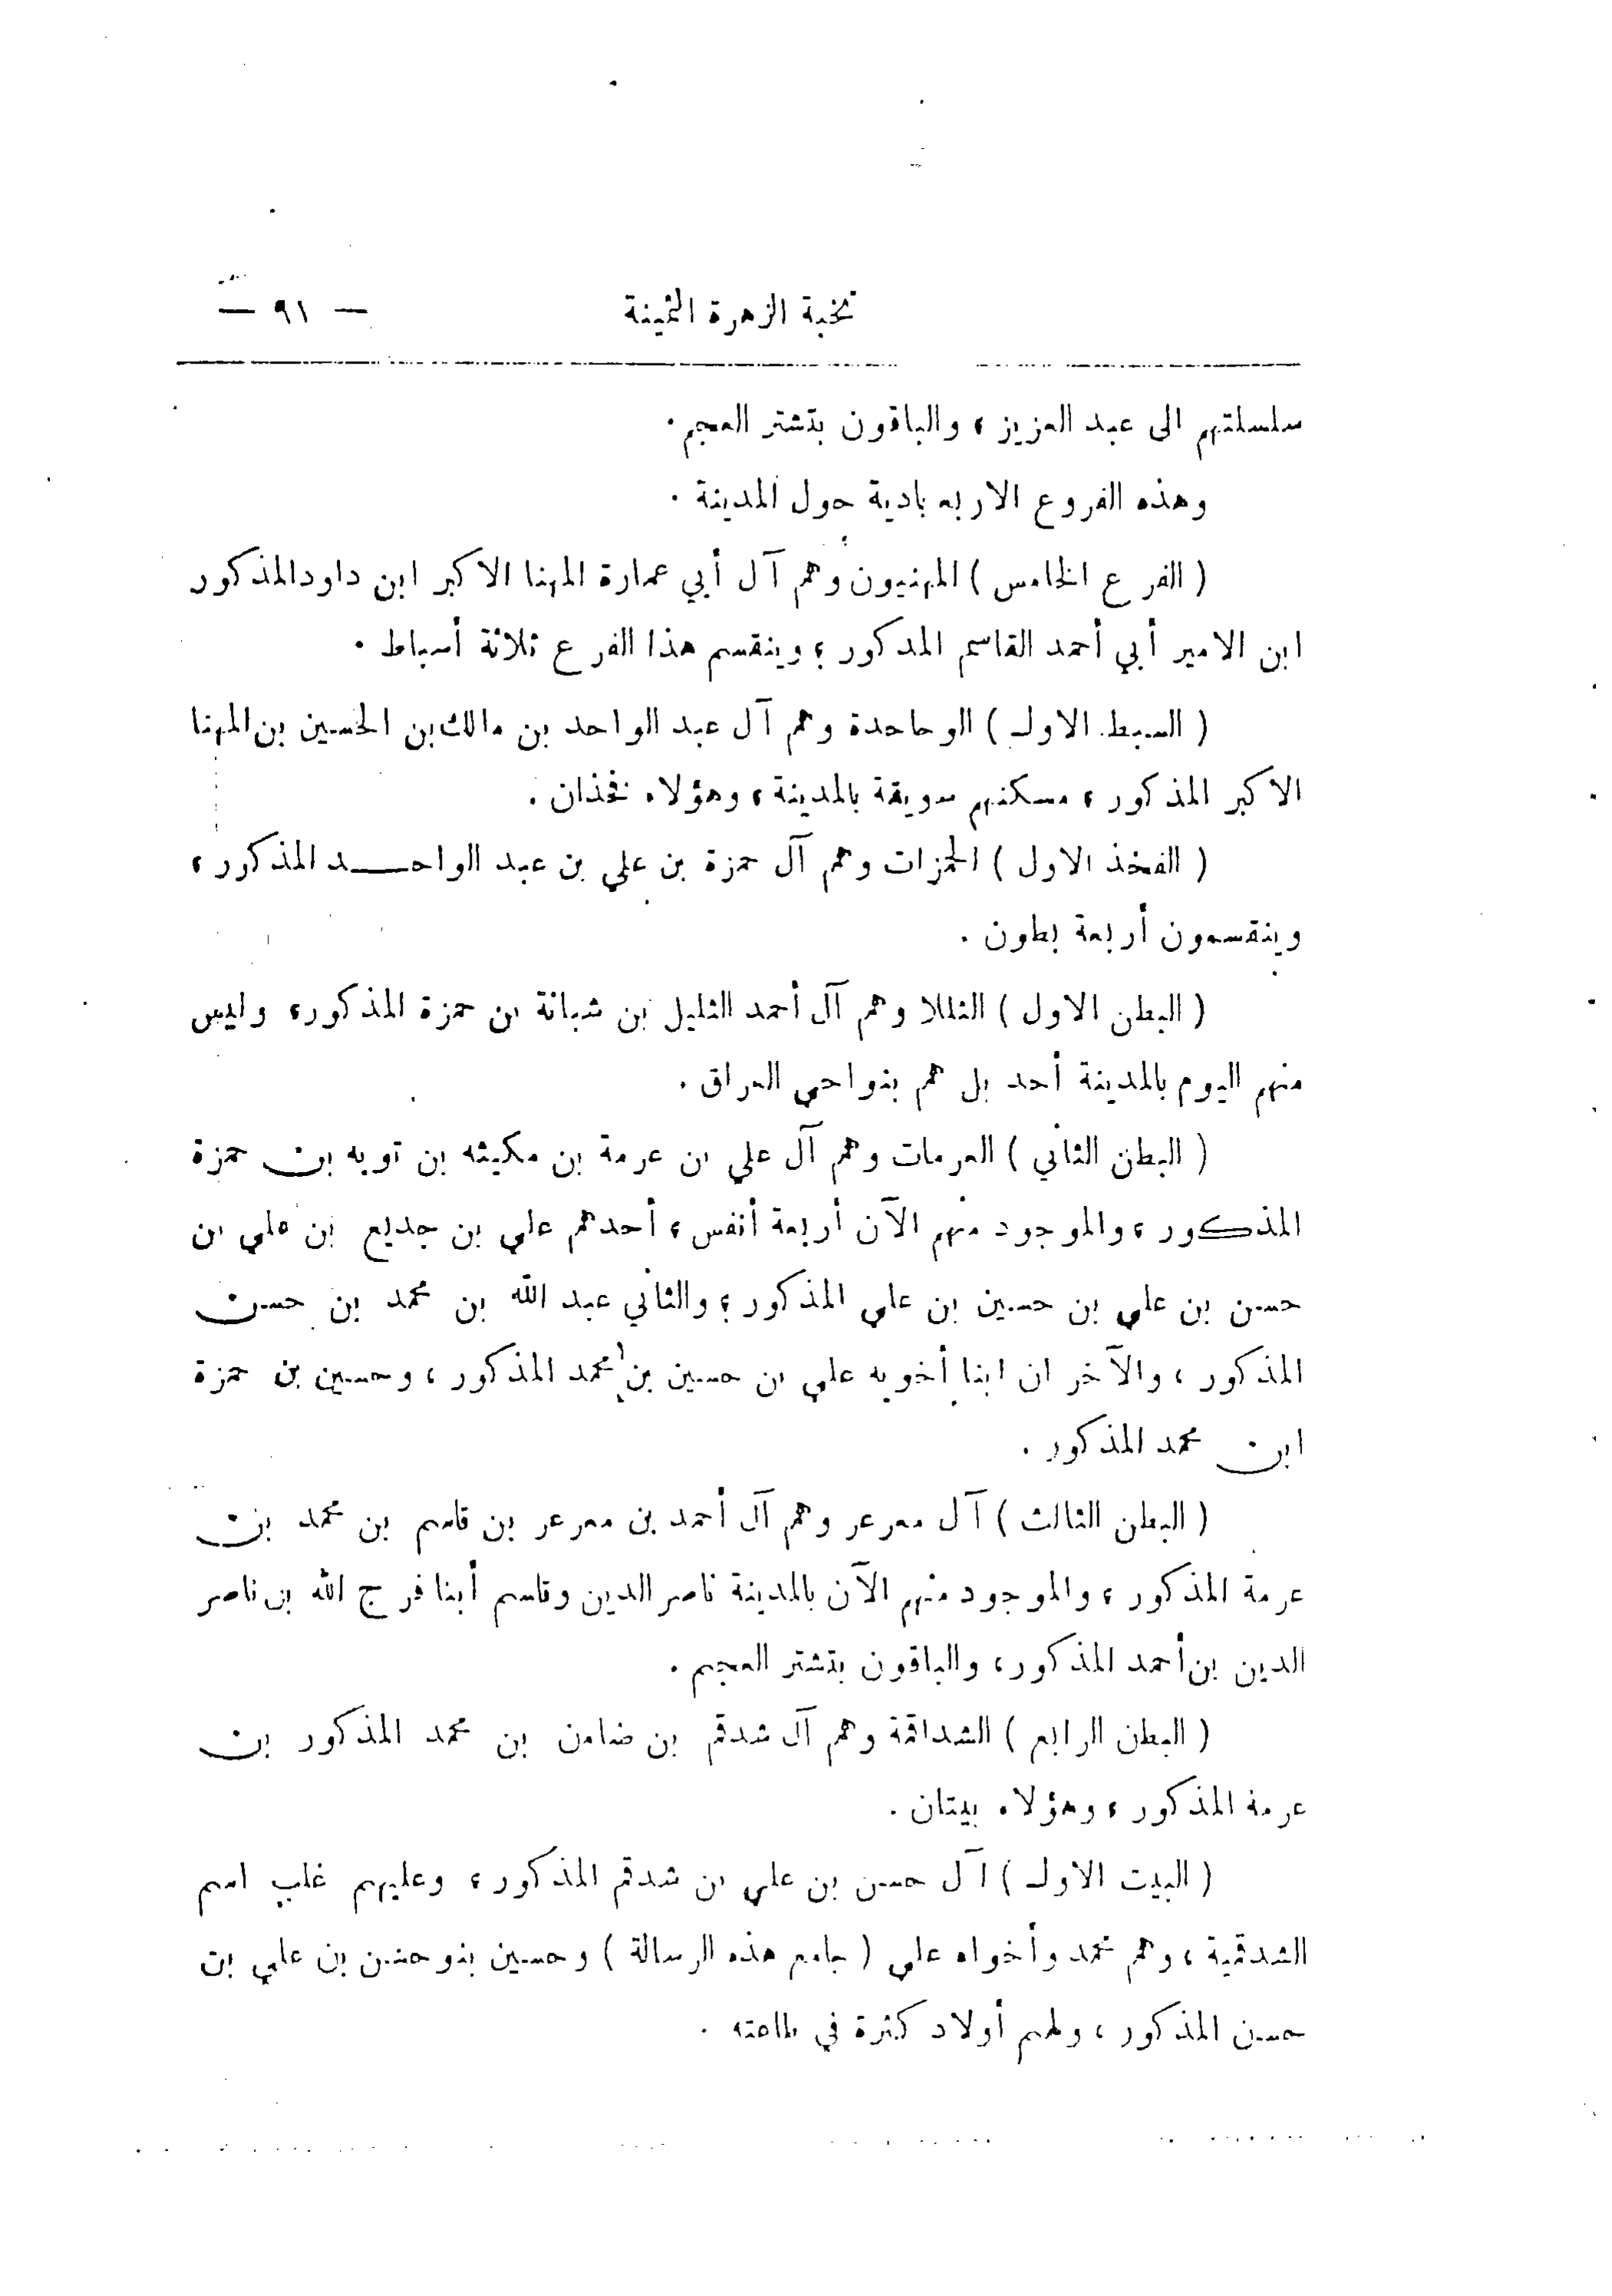 نخبة الزهرة الثمينة — ٩١ —
سلسلتهم الى عبد العزيز ، والباقون بتشتر العجم .
وهذه الفروع الاربع بادية حول المدينة .
( الفرع الخامس ) المهنيون وهم آل أبي عمارة المهنا الاكبر ابن داود المذكور
ابن الامير أبي أحمد القاسم المذكور ؛ وينقسم هذا الفرع ثلاثة أسباط .
( السبط الاول ) الوحاحدة وهم آل عبد الواحد بن مالك بن الحسين بن المهنا
الاكبر المذكور ، مسكنهم سويقة بالمدينة ، وهؤلاء فخذان .
( الفخذ الاول ) الحمزات وهم آل حمزة بن علي بن عبد الواحد المذكور ،
وينقسمون أربعة بطون .
( البطن الاول ) الثللا وهم آل أحمد الثليل بن شبانة بن حمزة المذكور ، وليس
منهم اليوم بالمدينة أحد بل هم بنواحي العراق .
( البطن الثاني ) العرمات وهم آل علي بن عرمة بن مكيثه بن توبه بن حمزة
المذكور ، والموجود منهم الآن أربعة أنفس ، أحدهم علي بن جديع بن علي بن
حسن بن علي بن حسين بن علي المذكور ؛ والثاني عبد الله بن محمد بن حسن
المذكور ، والآخر ان ابنا أخويه علي بن حسين بن محمد المذكور ، وحسين بن حمزة
ابن محمد المذكور .
( البطن الثالث ) آل معرعر وهم آل أحمد بن معرعر بن قاسم بن محمد بن
عرمة المذكور ، والموجود منهم الآن بالمدينة ناصر الدين وقاسم أبنا فرج الله بن ناصر
الدين بن أحمد المذكور ، والباقون بتشتر العجم .
( البطن الرابع ) الشداقمة وهم آل شدقم بن ضامن بن محمد المذكور بن
عرمة المذكور ، وهؤلاء بيتان .
( البيت الاول ) آل حسن بن علي بن شدقم المذكور ، وعليهم غلب اسم
الشدقمية ، وهم محمد وأخواه علي ( جامع هذه الرسالة ) وحسين بنو حسن بن علي بن
حسن المذكور ، ولهم أولاد كثرة في طاعته .